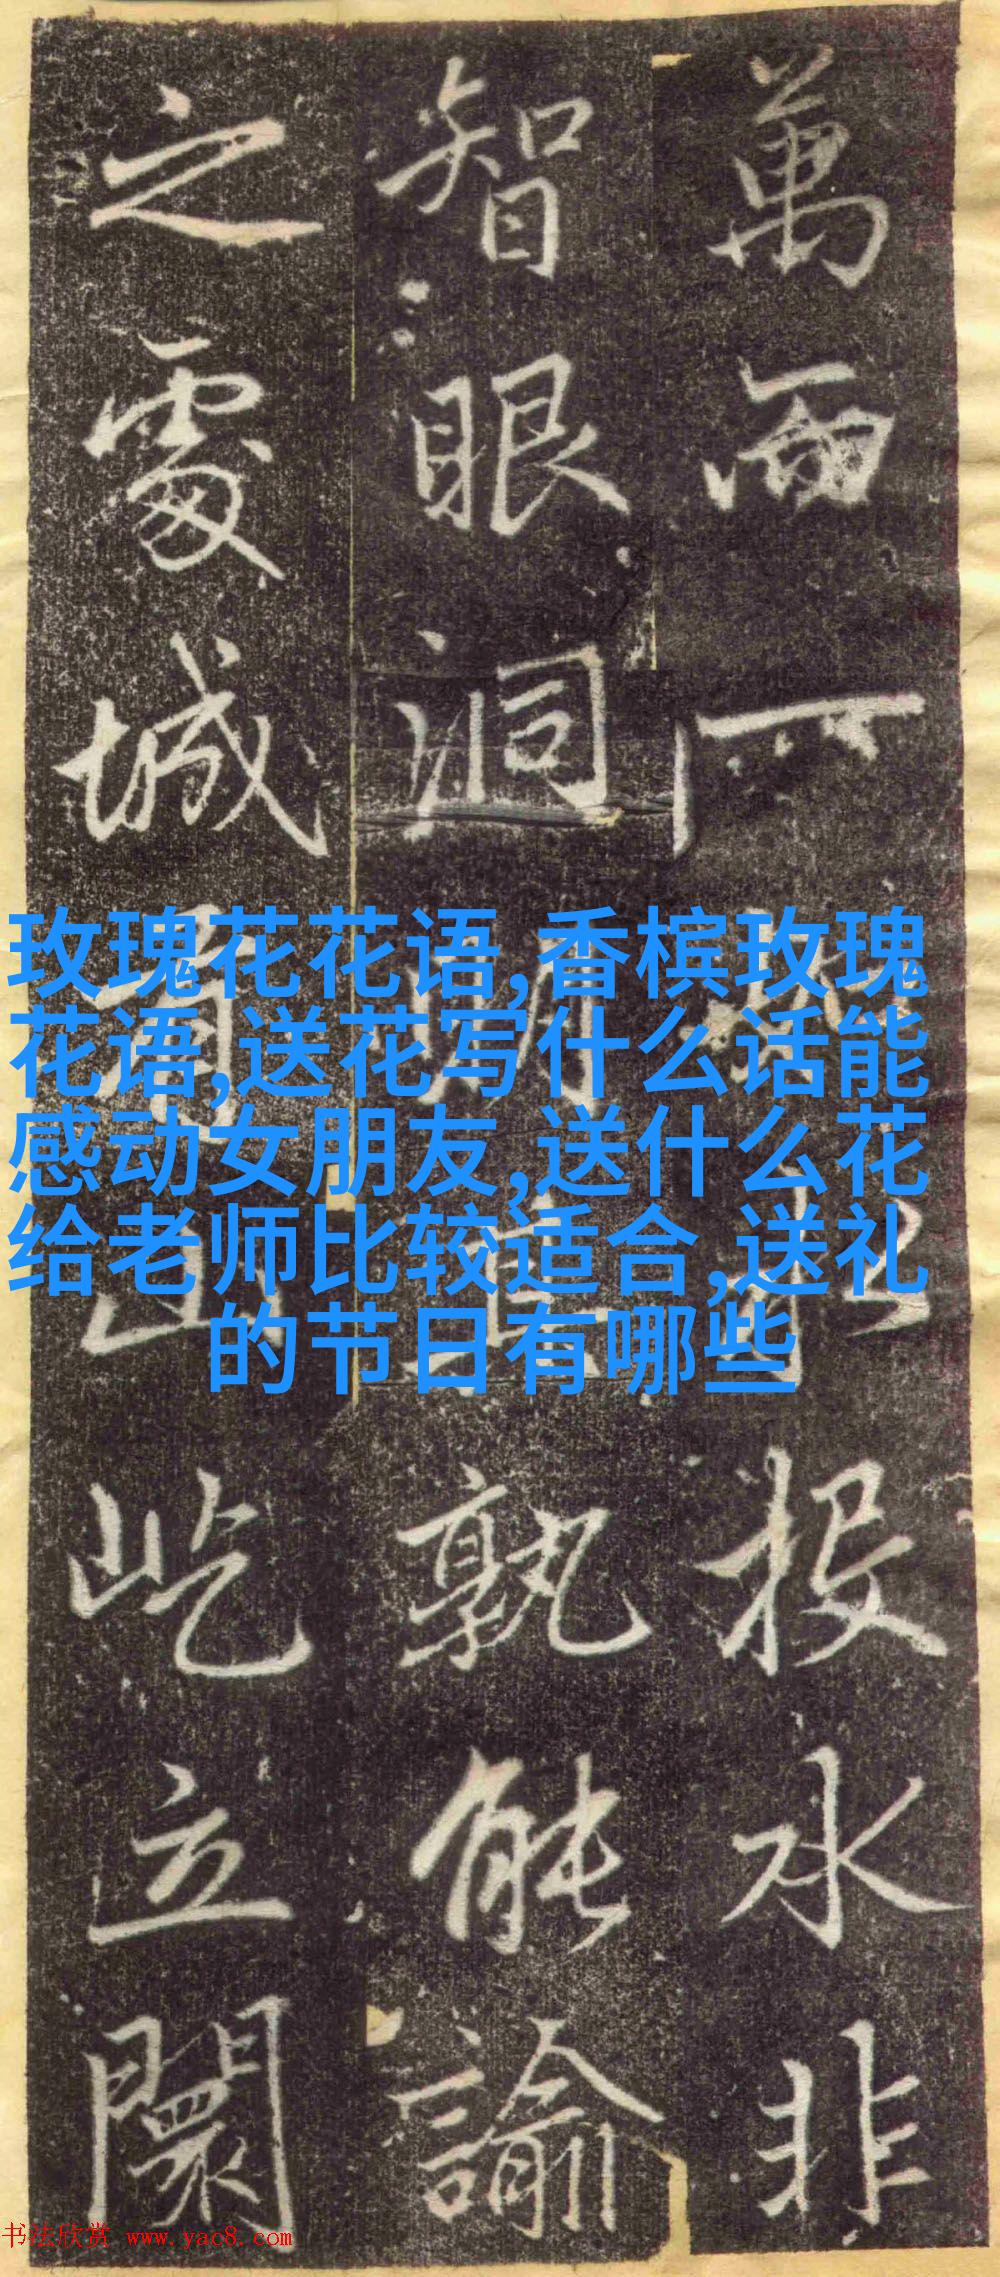 萬投水非
智眼洞孰能諭
之處城屹立闤
玫瑰花花语,香槟玫瑰
花语,送花写什么话能
感动女朋友,送什么花
给老师比较适合,送礼
的节日有哪些
书法欣赏 www.yac8.com